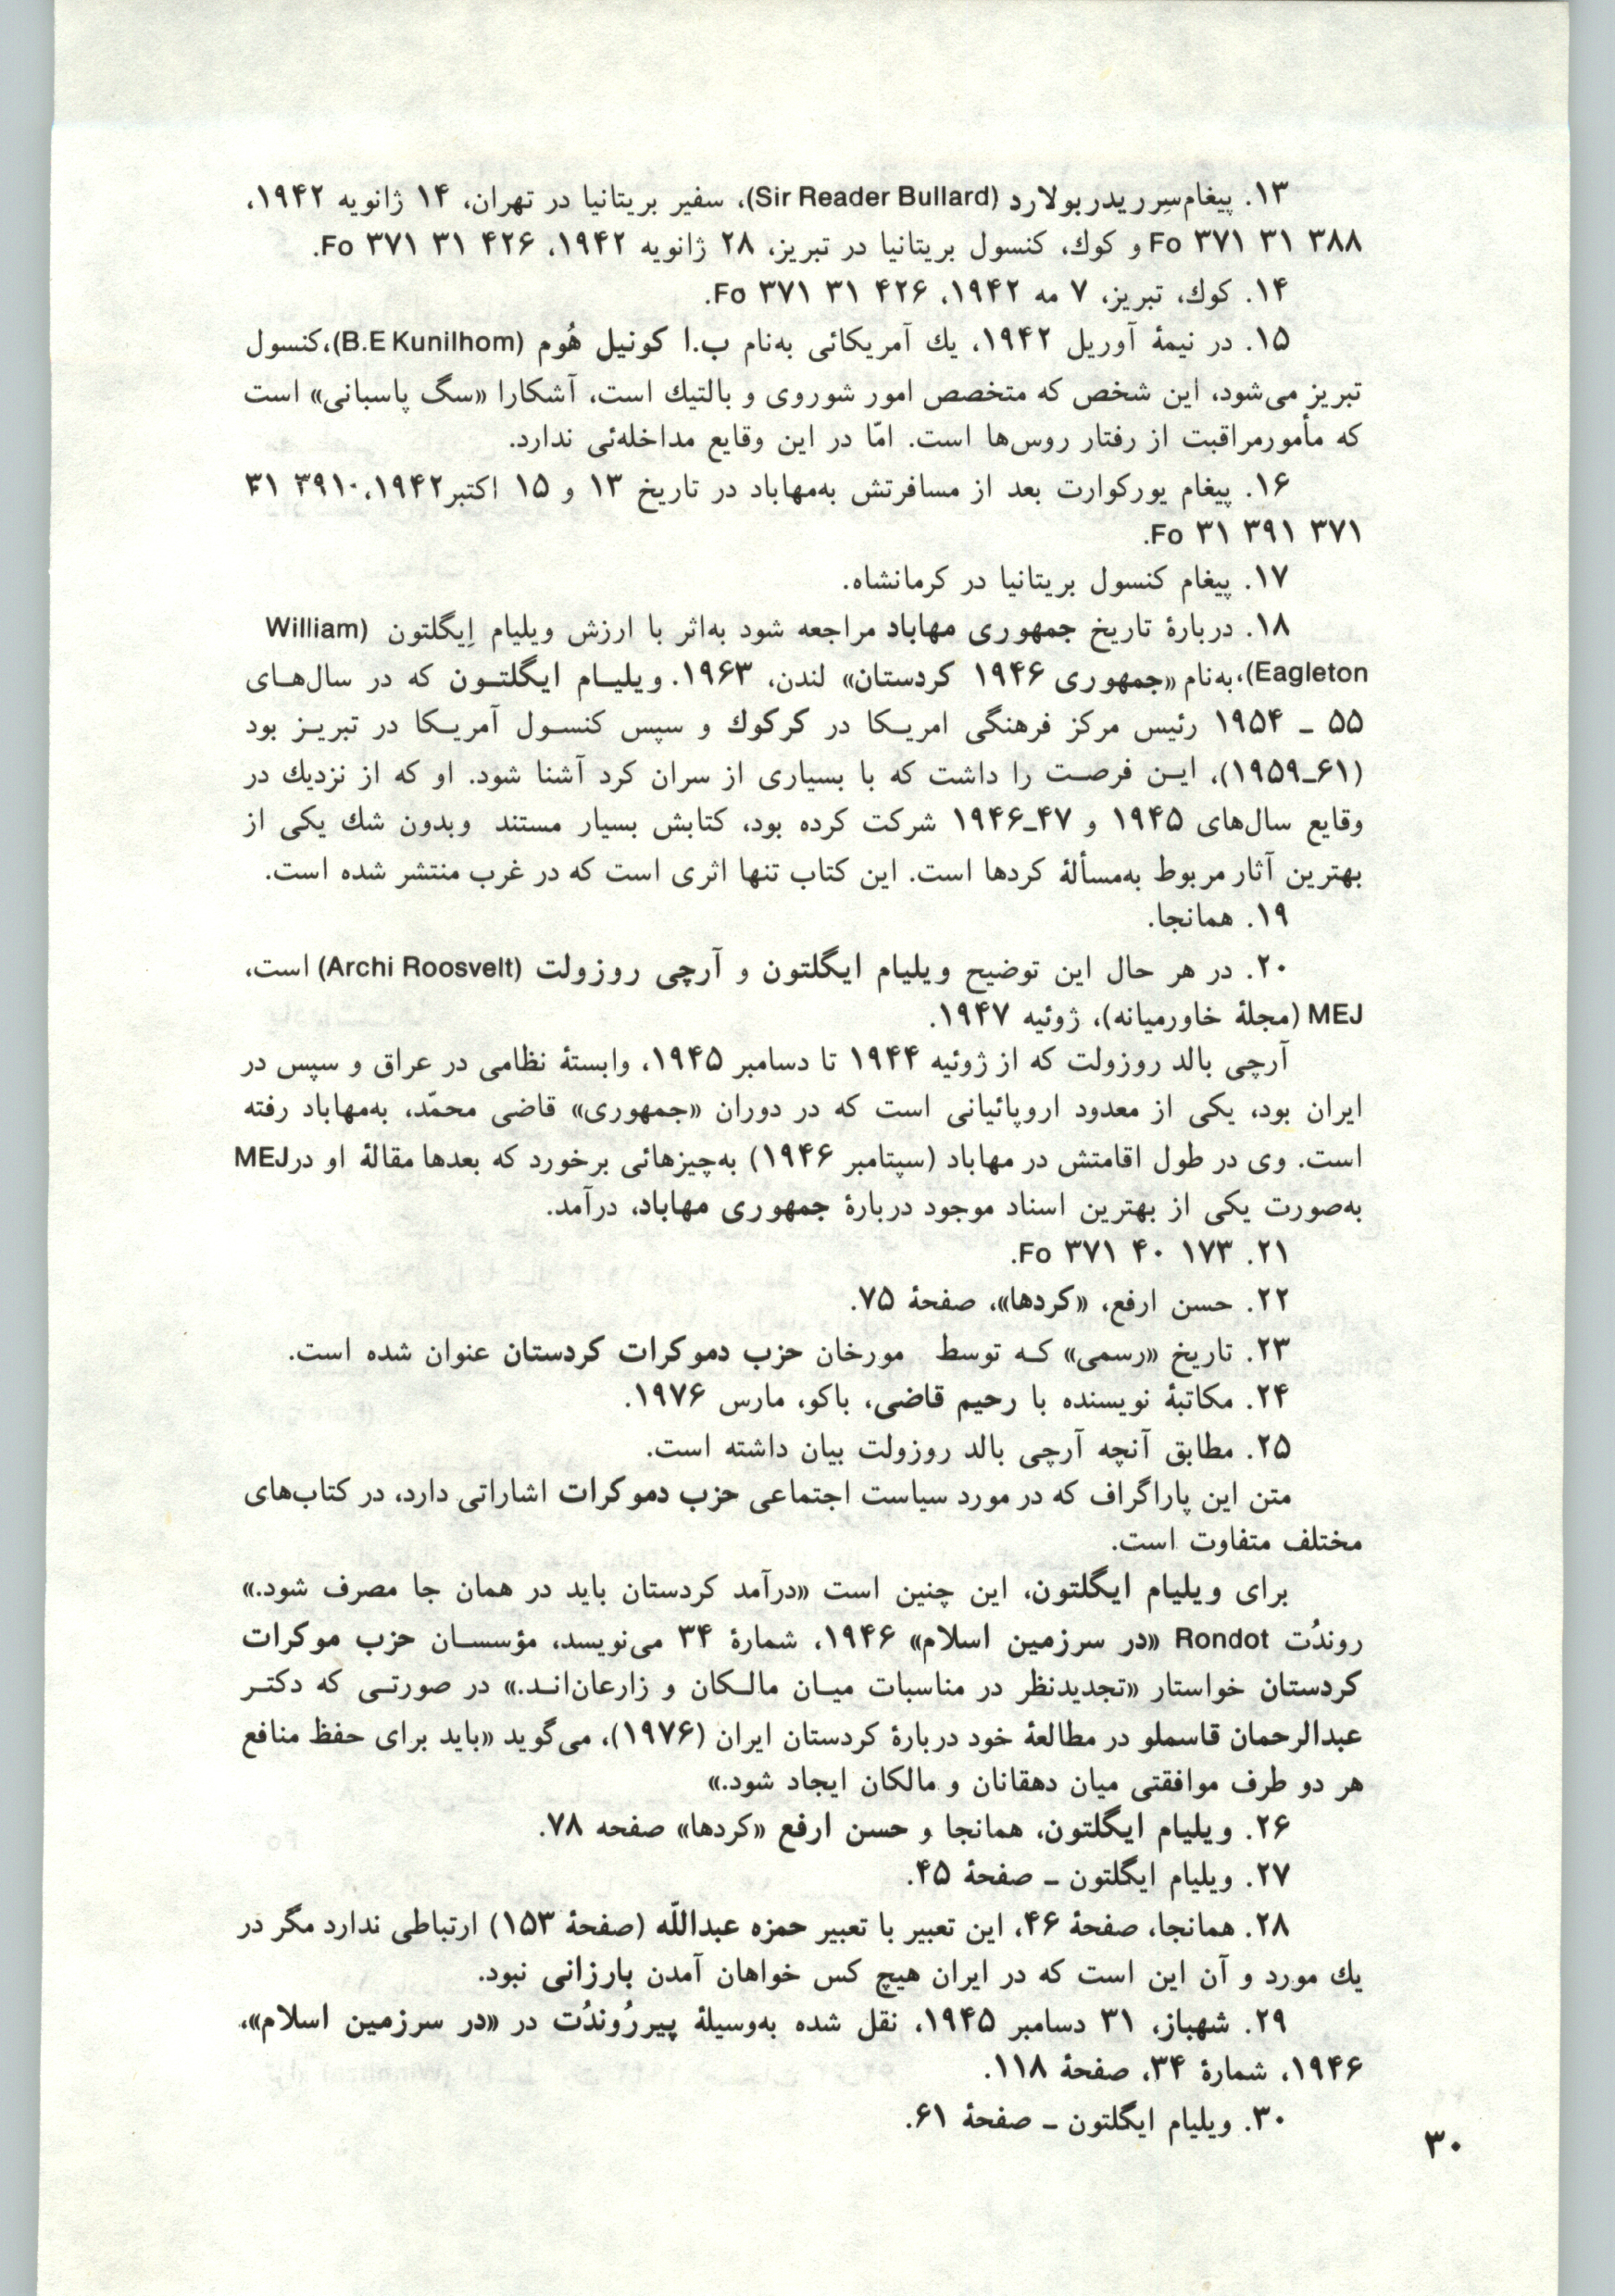 ۱۳. پیغام سِرریدربولارد (Sir Reader Bullard)، سفیر بریتانیا در تهران، ۱۴ ژانویه ۱۹۴۲،
۳۸۸ ۳۱ ۳۷۱ Fo و کوك، کنسول بریتانیا در تبریز، ۲۸ ژانویه ۱۹۴۲، ۴۲۶ ۳۱ ۳۷۱ Fo.
۱۴. کوك، تبریز، ۷ مه ۱۹۴۲، ۴۲۶ ۳۱ ۳۷۱ Fo.
۱۵. در نیمهٔ آوریل ۱۹۴۲، یك آمریکائی به‌نام ب.ا کونیل هُوم (B.E Kunilhom)، کنسول
تبریز می‌شود، این شخص که متخصص امور شوروی و بالتیك است، آشکارا «سگ پاسبانی» است
که مأمورمراقبت از رفتار روس‌ها است. امّا در این وقایع مداخله‌ئی ندارد.
۱۶. پیغام یورکوارت بعد از مسافرتش به‌مهاباد در تاریخ ۱۳ و ۱۵ اکتبر۱۹۴۲، ۳۹۱۰ ۳۱
۳۷۱ ۳۹۱ ۳۱ Fo.
۱۷. پیغام کنسول بریتانیا در کرمانشاه.
۱۸. دربارهٔ تاریخ جمهوری مهاباد مراجعه شود به‌اثر با ارزش ویلیام اِیگلتون (William
Eagleton)، به‌نام «جمهوری ۱۹۴۶ کردستان» لندن، ۱۹۶۳. ویلیـام ایگلتـون که در سال‌هـای
۵۵ ـ ۱۹۵۴ رئیس مرکز فرهنگی امریـکا در کرکوك و سپس کنسـول آمریـکا در تبریـز بود
(۶۱ـ۱۹۵۹)، ایـن فرصـت را داشت که با بسیاری از سران کرد آشنا شود. او که از نزدیك در
وقایع سال‌های ۱۹۴۵ و ۴۷ـ۱۹۴۶ شرکت کرده بود، کتابش بسیار مستند وبدون شك یکی از
بهترین آثار مربوط به‌مسألهٔ کردها است. این کتاب تنها اثری است که در غرب منتشر شده است.
۱۹. همانجا.
۲۰. در هر حال این توضیح ویلیام ایگلتون و آرچی روزولت (Archi Roosvelt) است،
MEJ (مجلهٔ خاورمیانه)، ژوئیه ۱۹۴۷.
آرچی بالد روزولت که از ژوئیه ۱۹۴۴ تا دسامبر ۱۹۴۵، وابستهٔ نظامی در عراق و سپس در
ایران بود، یکی از معدود اروپائیانی است که در دوران «جمهوری» قاضی محمّد، به‌مهاباد رفته
است. وی در طول اقامتش در مهاباد (سپتامبر ۱۹۴۶) به‌چیزهائی برخورد که بعدها مقالهٔ او در MEJ
به‌صورت یکی از بهترین اسناد موجود دربارهٔ جمهوری مهاباد، درآمد.
۲۱. ۱۷۳ ۴۰ ۳۷۱ Fo.
۲۲. حسن ارفع، «کردها»، صفحهٔ ۷۵.
۲۳. تاریخ «رسمی» کـه توسط مورخان حزب دموکرات کردستان عنوان شده است.
۲۴. مکاتبهٔ نویسنده با رحیم قاضی، باکو، مارس ۱۹۷۶.
۲۵. مطابق آنچه آرچی بالد روزولت بیان داشته است.
متن این پاراگراف که در مورد سیاست اجتماعی حزب دموکرات اشاراتی دارد، در کتاب‌های
مختلف متفاوت است.
برای ویلیام ایگلتون، این چنین است «درآمد کردستان باید در همان جا مصرف شود.»
روندُت Rondot «در سرزمین اسلام» ۱۹۴۶، شمارهٔ ۳۴ می‌نویسد، مؤسسـان حزب موکرات
کردستان خواستار «تجدیدنظر در مناسبات میـان مالـکان و زارعان‌انـد.» در صورتـی که دکتـر
عبدالرحمان قاسملو در مطالعهٔ خود دربارهٔ کردستان ایران (۱۹۷۶)، می‌گوید «باید برای حفظ منافع
هر دو طرف موافقتی میان دهقانان و مالکان ایجاد شود.»
۲۶. ویلیام ایگلتون، همانجا و حسن ارفع «کردها» صفحه ۷۸.
۲۷. ویلیام ایگلتون ـ صفحهٔ ۴۵.
۲۸. همانجا، صفحهٔ ۴۶، این تعبیر با تعبیر حمزه عبداللّه (صفحهٔ ۱۵۳) ارتباطی ندارد مگر در
یك مورد و آن این است که در ایران هیچ کس خواهان آمدن بارزانی نبود.
۲۹. شهباز، ۳۱ دسامبر ۱۹۴۵، نقل شده به‌وسیلهٔ پیررُوندُت در «در سرزمین اسلام»،
۱۹۴۶، شمارهٔ ۳۴، صفحهٔ ۱۱۸.
۳۰. ویلیام ایگلتون ـ صفحهٔ ۶۱.
۳۰